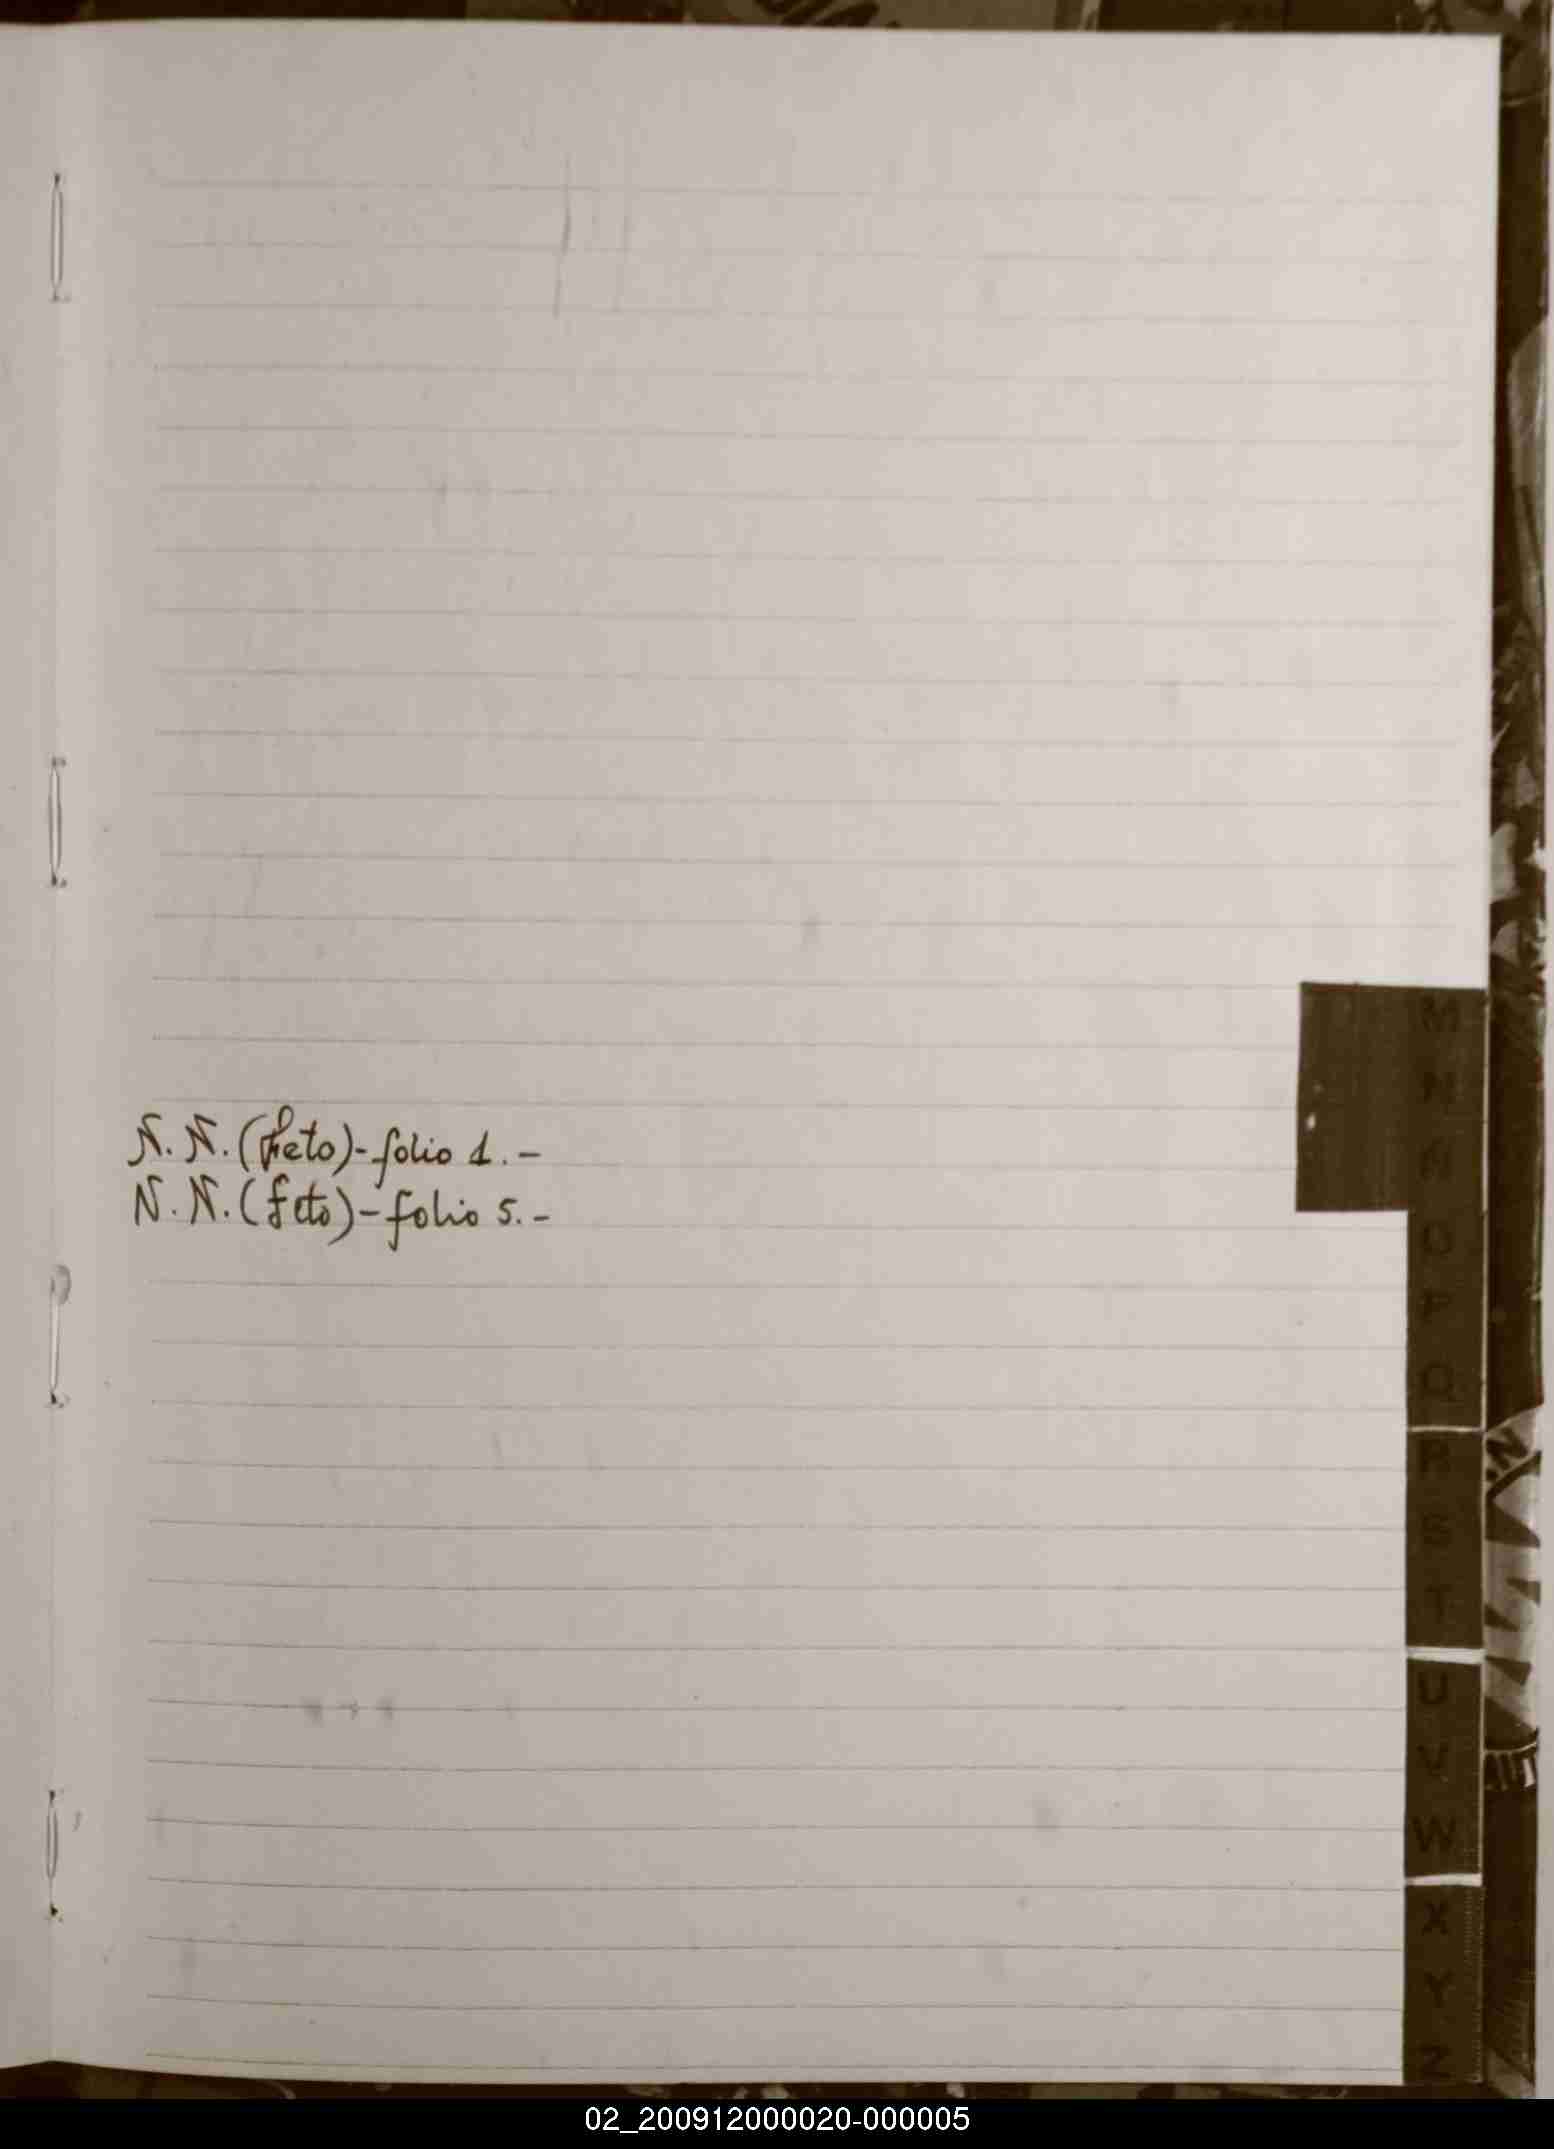 N. N. (feto)-folio 1.-
N. N. (feto)-folio 5.-
M
N
Ñ
O
P
Q
R
S
T
U
V
W
X
Y
Z
02_200912000020-000005